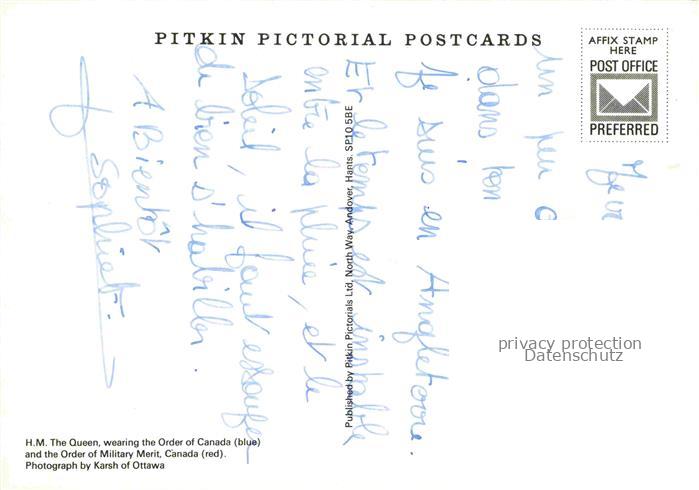 PITKIN PICTORIAL POSTCARDS
AFFIX STAMP
HERE
POST OFFICE
PREFERRED
un peu
dans ton
Je suis en Angleterre.
Et le temps est instable
entre la pluie, et le
soleil, il faut essayer
de bien s'habiller.
A Bientôt
Published by Pitkin Pictorials Ltd, North Way, Andover, Hants. SP10 5BE
privacy protection
Datenschutz
H.M. The Queen, wearing the Order of Canada (blue)
and the Order of Military Merit, Canada (red).
Photograph by Karsh of Ottawa